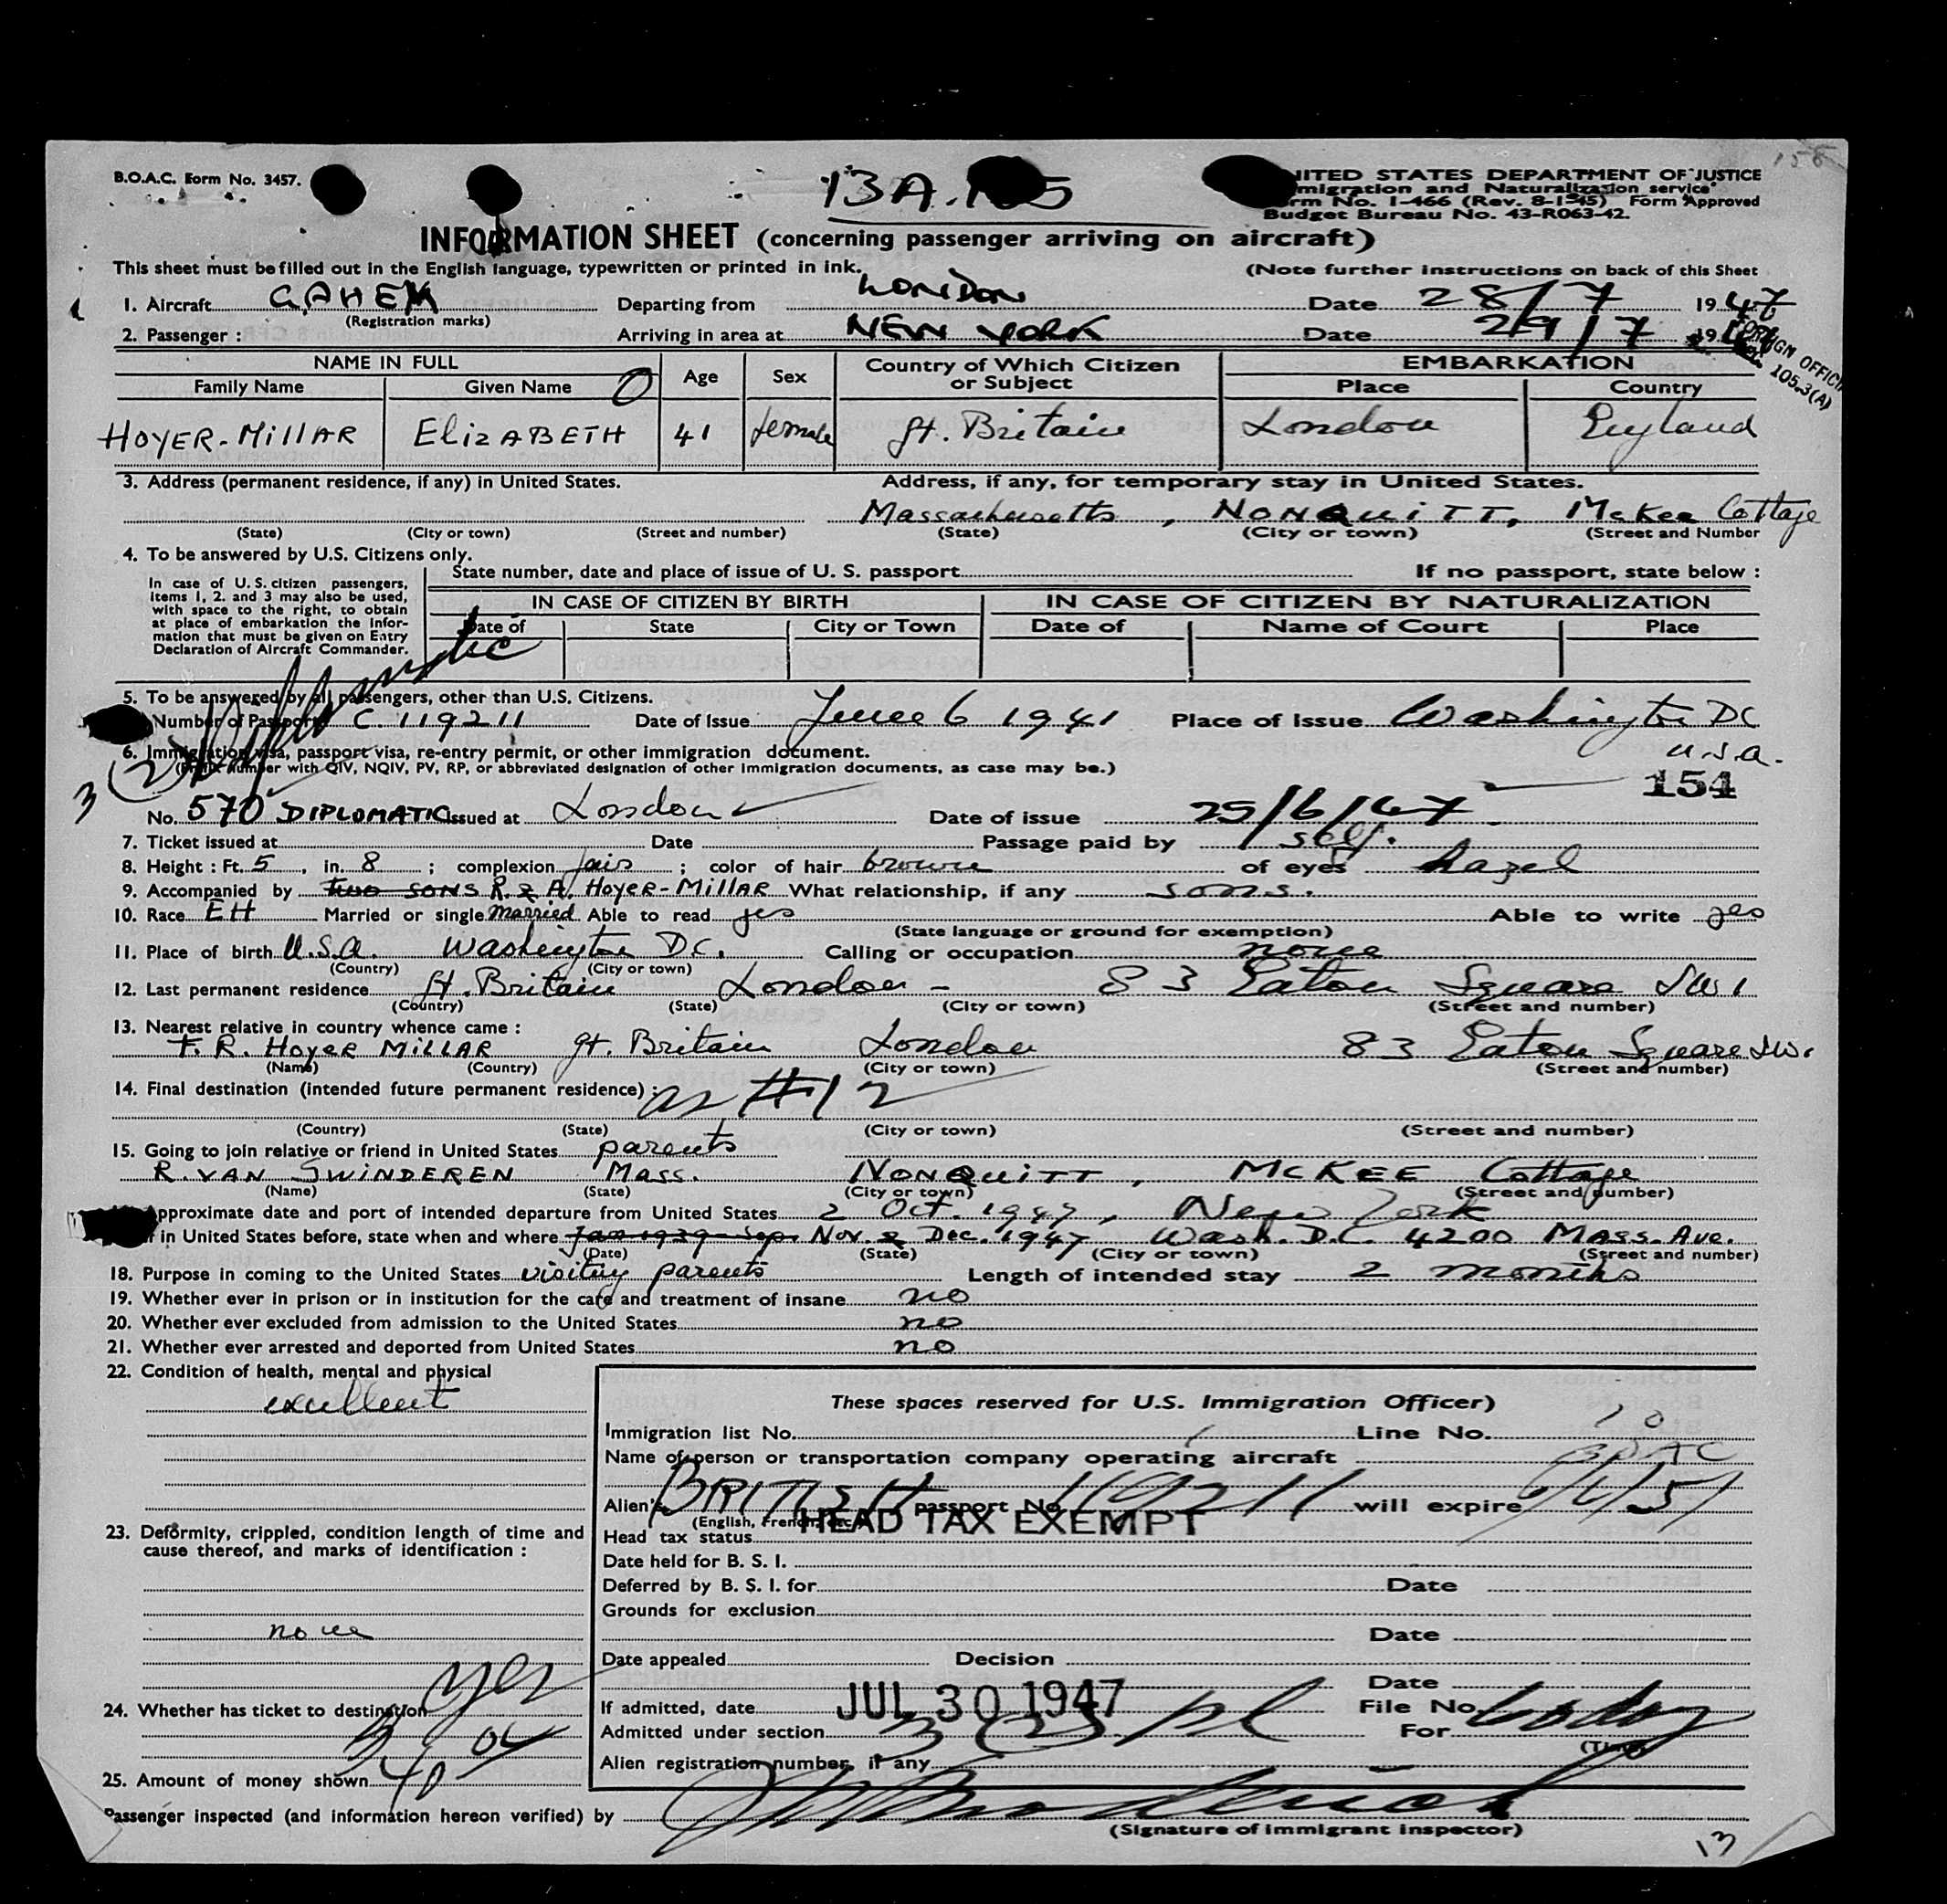 B.O.A.C. Form No. 3457.
13A.
UNITED STATES DEPARTMENT OF JUSTICE
Immigration and Naturalization service
Form No. 1-466 (Rev. 8-1-45) Form Approved
Budget Bureau No. 43-R063-42.
INFORMATION SHEET (concerning passenger arriving on aircraft)
This sheet must be filled out in the English language, typewritten or printed in ink.
(Note further instructions on back of this Sheet
1. Aircraft GAHEM Departing from LONDON Date 28/7 1947
(Registration marks)
2. Passenger : Arriving in area at NEW YORK Date 29/7 19
FOREIGN OFFICIAL
105.3(A)
NAME IN FULL Age Sex Country of Which Citizen or Subject EMBARKATION
Family Name Given Name Place Country
HOYER-MillAR ElizABETH 41 female Gt. Britain London England
3. Address (permanent residence, if any) in United States. Address, if any, for temporary stay in United States.
Massachusetts, NONQUITT, McKee Cottage
(State) (City or town) (Street and number) (State) (City or town) (Street and Number
4. To be answered by U.S. Citizens only.
In case of U.S. citizen passengers,
items 1, 2. and 3 may also be used,
with space to the right, to obtain
at place of embarkation the Infor-
mation that must be given on Entry
Declaration of Aircraft Commander.
State number, date and place of issue of U. S. passport If no passport, state below :
IN CASE OF CITIZEN BY BIRTH IN CASE OF CITIZEN BY NATURALIZATION
Date of State City or Town Date of Name of Court Place
Diplomatic
5. To be answered by all passengers, other than U.S. Citizens.
Number of Passport C. 119211 Date of Issue June 6 1941 Place of Issue Washington DC
U.S.A.
6. Immigration visa, passport visa, re-entry permit, or other immigration document.
(Prefix number with QIV, NQIV, PV, RP, or abbreviated designation of other Immigration documents, as case may be.)
3 (2)
154
No. 570 DIPLOMATIC Issued at London Date of issue 25/6/47
7. Ticket issued at Date Passage paid by self.
8. Height : Ft. 5, in. 8 ; complexion fair ; color of hair brown of eyes hazel
9. Accompanied by two sons R. & A. HOYER-MillAR What relationship, if any sons.
10. Race EH Married or single Married Able to read yes Able to write yes
(State language or ground for exemption)
11. Place of birth U.S.A. Washington D.C. Calling or occupation none
(Country) (City or town)
12. Last permanent residence Gt. Britain London - 83 Eaton Square SW1
(Country) (State) (City or town) (Street and number)
13. Nearest relative in country whence came :
F. R. HOYER MILLAR Gt. Britain London 83 Eaton Square SW.
(Name) (Country) (City or town) (Street and number)
14. Final destination (intended future permanent residence) : as #12
(Country) (State) (City or town) (Street and number)
15. Going to join relative or friend in United States parents
R. VAN SWINDEREN MASS. NONQUITT, MCKEE Cottage
(Name) (State) (City or town) (Street and number)
Approximate date and port of intended departure from United States 2 Oct. 1947, New York
If in United States before, state when and where Jan 1939 - Sep. Nov. & Dec. 1947 Wash. D.C. 4200 MASS. Ave.
(Date) (State) (City or town) (Street and number)
18. Purpose in coming to the United States visiting parents Length of intended stay 2 months
19. Whether ever in prison or in institution for the care and treatment of insane no
20. Whether ever excluded from admission to the United States no
21. Whether ever arrested and deported from United States no
22. Condition of health, mental and physical
excellent
These spaces reserved for U.S. Immigration Officer)
Immigration list No. 1 Line No. 10
Name of person or transportation company operating aircraft BOAC
Alien's BRITISH passport No. 119211 will expire 6/6/51
(English, French, etc.)
Head tax status HEAD TAX EXEMPT
23. Deformity, crippled, condition length of time and
cause thereof, and marks of identification :
none
Date held for B. S. I.
Deferred by B. S. I. for Date
Grounds for exclusion
Date
Date appealed Decision
Date
24. Whether has ticket to destination yes
If admitted, date JUL 30 1947 File No.
Admitted under section 3 (2) For
(Time)
Alien registration number, if any
25. Amount of money shown
Passenger inspected (and information hereon verified) by
(Signature of immigrant inspector)
13